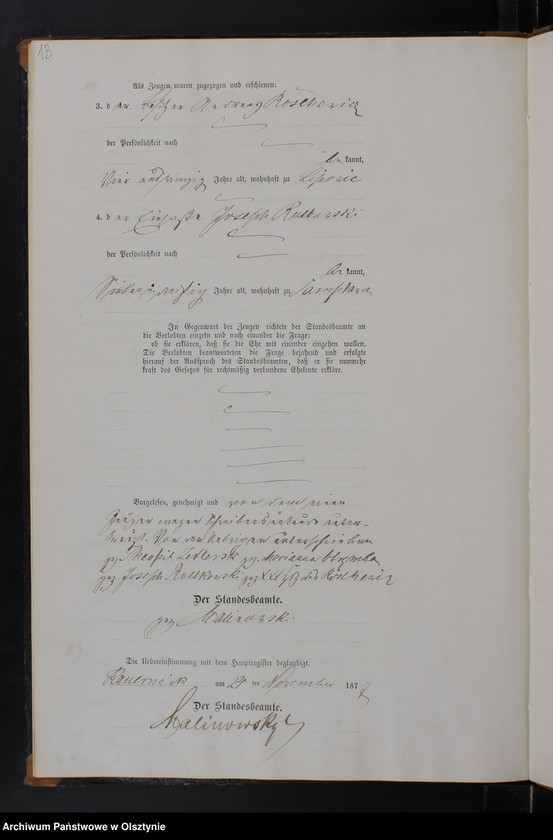 13
Als Zeugen waren zugezogen und erschienen:
3. der Besitzer Andreas
der Persönlichkeit nach
be kannt,
Vier und zwanzig Jahre alt, wohnhaft zu
4. der Einsasse Joseph Rutkowski
der Persönlichkeit nach
be kannt,
Sieben u. dreißig Jahre alt, wohnhaft zu
In Gegenwart der Zeugen richtete der Standesbeamte an
die Verlobten einzeln und nach einander die Frage:
ob sie erklären, daß sie die Ehe mit einander eingehen wollen.
Die Verlobten beantworteten die Frage bejahend und erfolgte
hierauf der Ausspruch des Standesbeamten, daß er sie nunmehr
kraft des Gesetzes für rechtmäßig verbundene Eheleute erkläre.
Vorgelesen, genehmigt und von dem einen
Zeugen wegen Schreibensunkunde unter-
kreuzt. Von den Uebrigen unterschrieben
gez. Theophil gez. Marianna
gez. Joseph Rutkowski gez. XXX
Der Standesbeamte.
gez. Malinowski
Die Uebereinstimmung mit dem Hauptregister beglaubigt.
Kauernick am 21 ten November 187
Der Standesbeamte.
Malinowsky
Archiwum Państwowe w Olsztynie